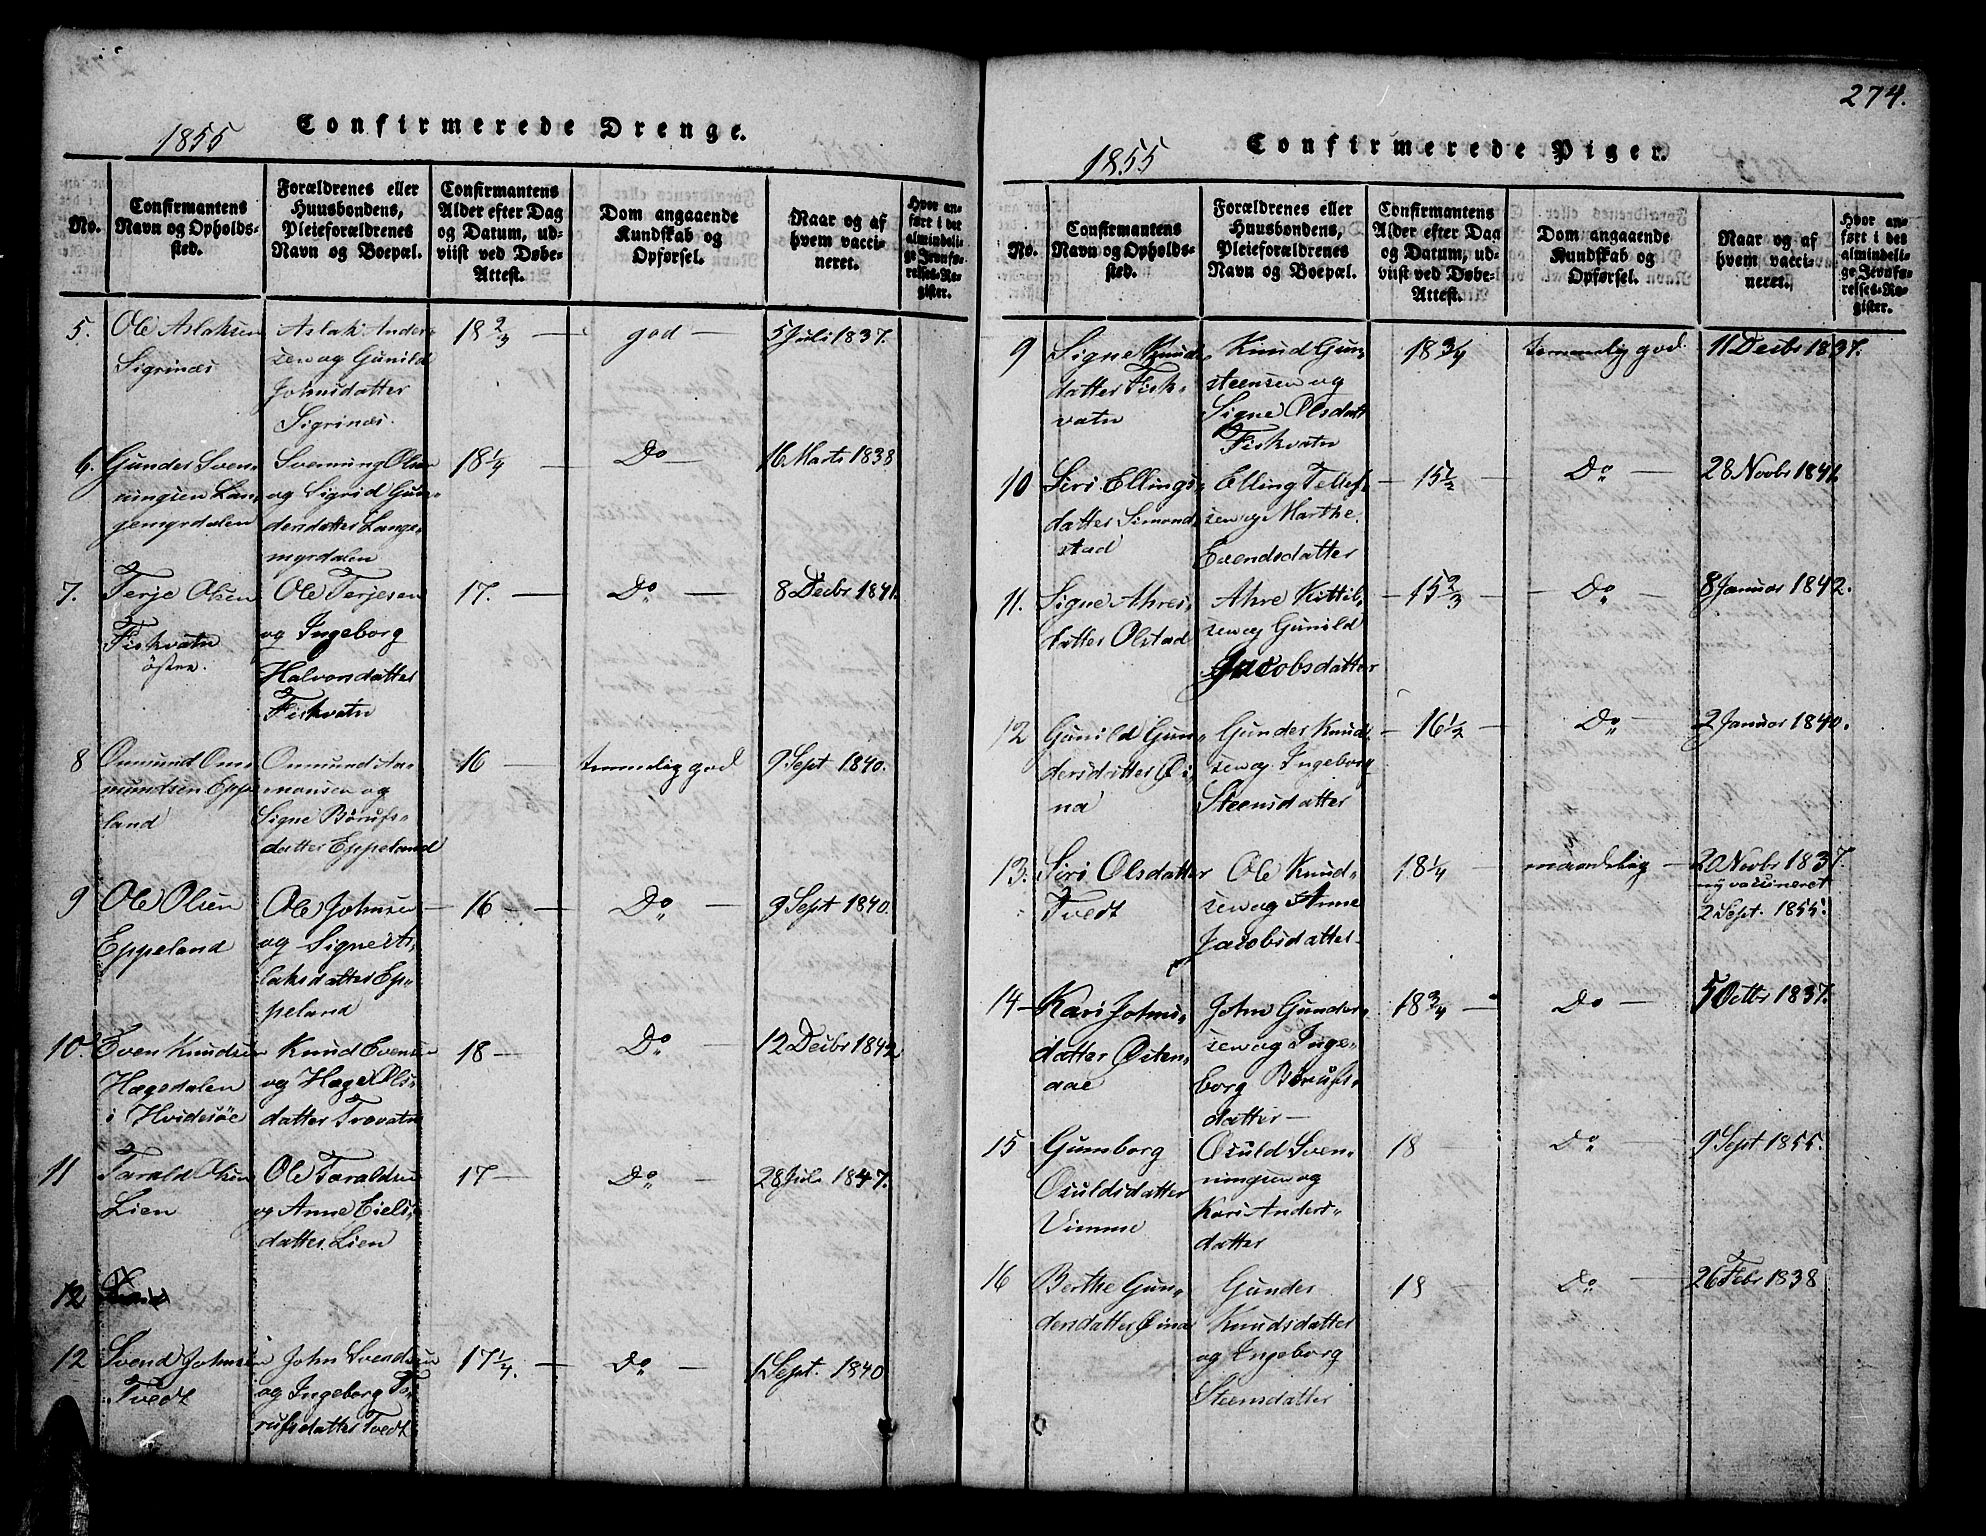 274.
1855
Confirmerede Drenge.
No.
Confirmantens
Navn og Opholds-
sted.
Forældrenes eller
Huusbondens,
Pleieforældrenes
Navn og Boepæl.
Confirmantens
Alder efter Dag
og Datum, ud-
viist ved Døbe-
Attest.
Dom angaaende
Kundskab og
Opførsel.
Naar og af
hvem vacci-
neret.
Hvor an-
ført i det
almindeli-
ge Jevnfø-
relses-Re-
gister.
5.
Ole Aslaksen
Sigrinæs
Aslak Ander-
sen og Gunild
Johnsdatter
Sigrinæs.
18 2/3
god
5 Juli 1837.
6.
Gunder Sven-
ningsen Lan-
gemyrdalen
Svenning Olsen
og Sigrid Gun-
dersdatter Lange-
myrdalen
18 1/4
Do
16 Marts 1838
7.
Terje Olsen
Fiskvatn
østre.
Ole Terjesen
og Ingeborg
Halvorsdatter
Fiskvatn
17.
Do
8 Decbr 1841.
8
Osmund Os-
mundsen Eppe
land
Osmund Aa-
monsen og
Signe Børufs-
datter Eppeland
16
temmelig god
9 Sept 1840.
9
Ole Olsen
Eppeland
Ole Johnsen
og Signe As-
laksdatter Ep-
peland
16
Do
9 Sept 1840.
10.
Even Knudsen
Hægedalen
i Hvidesøe
Knud Evensen
og Hæge Ols-
datter Trovatn
18
Do
12 Decbr 1842
11
Tarald Olsen
Lien
Ole Taraldsen
og Anne Eiels-
datter Lien
17
Do
28 Juli 1847.
12
12
Svend Johnsen
Tvedt
John Svendsen
og Ingeborg Bo-
rufsdatter Tvedt
17 1/4.
Do
1 Sept. 1840
1855
Confirmerede Piger.
No.
Confirmantens
Navn og Opholds-
sted.
Forældrenes eller
Huusbondens,
Pleieforældrenes
Navn og Boepæl.
Confirmantens
Alder efter Dag
og Datum, ud-
viist ved Døbe-
Attest.
Dom angaaende
Kundskab og
Opførsel.
Naar og af
hvem vacci-
neret.
Hvor an-
ført i det
almindeli-
ge Jevnfø-
relses-Re-
gister.
9
Signe Knuds-
datter Fisk-
vatn
Knud Gun-
steensen og
Signe Olsdatt
Fiskvatn
18 3/4
temmelig god
11 Decbr 1837.
10
Siri Ellings-
datter Simond-
stad
Elling Tellef-
sen og Marthe
Evendsdatter
15 1/2
Do
28 Novbr 1841.
11.
Signe Ahres-
datter Olstad
Ahre Kittil-
sen og Gunild
Jacobsdatter
15 2/3
Do
8 Januar 1842.
12
Gunild Gun-
dersdatter Øi-
na
Gunder Knud-
sen og Ingeborg
Steensdatter
16 1/2
Do
2 Januar 1840.
13.
Siri Olsdatter
Tvedt
Ole Knud-
sen og Anne
Jacobsdatter
18 1/4
maadelig
20 Novbr 1837.
ny vaccineret
2 Sept. 1855.
14
Kari Johns-
datter Østen-
aae
John Gunder-
sen og Inge-
borg Børufs-
datter
18 3/4
Do
5 Octbr 1837.
15
Gunborg
Osuldsdatter
Vimme
Osuld Sven-
ningsen og
Kari Anders-
datter
18
Do
9 Sept 1855.
16
Berthe Gun-
dersdatter Øina
Gunder
Knudsdatter
og Ingeborg
Steensdatter
18
Do
26 Febr 1838